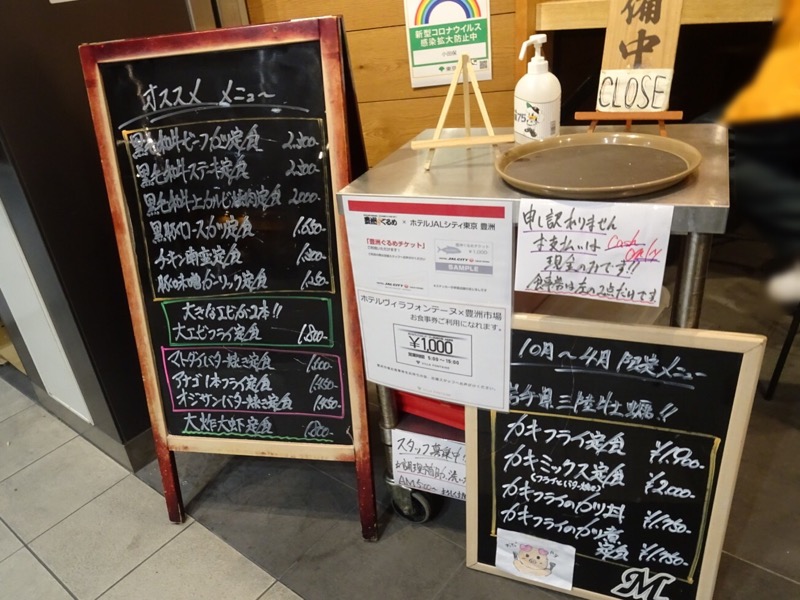 オススメ メニュー
黒毛和牛ビーフカツ定食 2,200-
黒毛和牛ステーキ定食 2,200-
黒毛和牛上カルビ焼肉定食 2,000-
黒豚ロースカツ定食
チキン南蛮定食
大きなエビが2本!!
大エビフライ定食 1,800-
マトダイバター焼き定食
アナゴ1本フライ定食
オジサンバター焼き定食
大炸大虾定食 1,800-
新型コロナウイルス
感染拡大防止中
備中
CLOSE
豊洲ぐるめ × ホテルJALシティ東京 豊洲
【豊洲ぐるめチケット】
¥1,000
JAL CITY
SAMPLE
ホテルヴィラフォンテーヌ×豊洲市場
お食事券ご利用になれます。
¥1,000
申し訳ありません
お支払いは Cash only
現金のみです!!
お食事券は左の2点だけです
スタッフ募集中
10月～4月 限定メニュー
岩手県三陸牡蠣!!
カキフライ定食 ¥1,700-
カキミックス定食 ¥2,000-
(フライとバター焼き)
カキフライのカツ丼 ¥1,750-
カキフライのカツ煮
定食 ¥1,750-
M